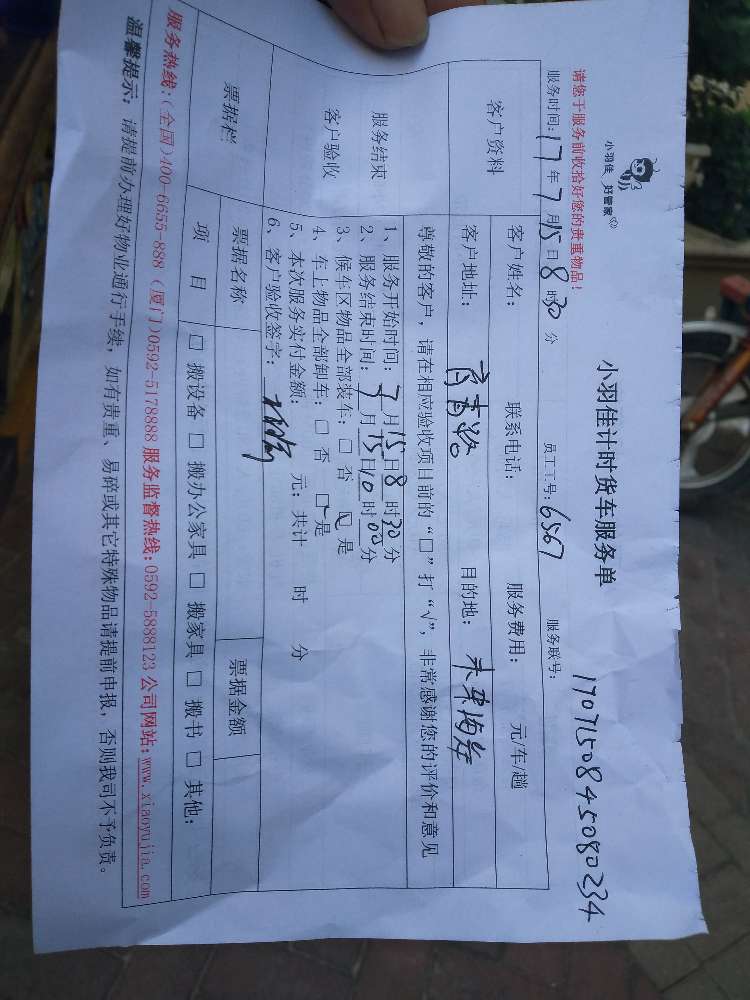 小羽佳 好管家
小羽佳计时货车服务单
1707150845080234
请您于服务前收拾好您的贵重物品!
服务时间:17年7月15日8时30分 员工工号:6567 服务联号:
客户资料
客户姓名: 联系电话: 服务费用: 元/车/趟
客户地址: 目的地:未来海岸
服务结束
客户验收
尊敬的客户,请在相应验收项目前的“□”打“√”,非常感谢您的评价和意见
1、服务开始时间:7月15日8时30分
2、服务结束时间:7月15日10时00分
3、候车区物品全部装车:□ 否 ☑ 是
4、车上物品全部卸车:□ 否 ☑ 是
5、本次服务实付金额: 元;共计 时 分
6、客户验收签字:
票据栏
票据名称 票据金额
项 目 □ 搬设备 □ 搬办公家具 □ 搬家具 □ 搬书 □ 其他:
服务热线:(全国)400-6655-888 (厦门)0592-5178888 服务监督热线:0592-5888123 公司网站:www.xiaoyujia.com
温馨提示:请提前办理好物业通行手续,如有贵重、易碎或其它特殊物品请提前申报,否则我司不予负责。